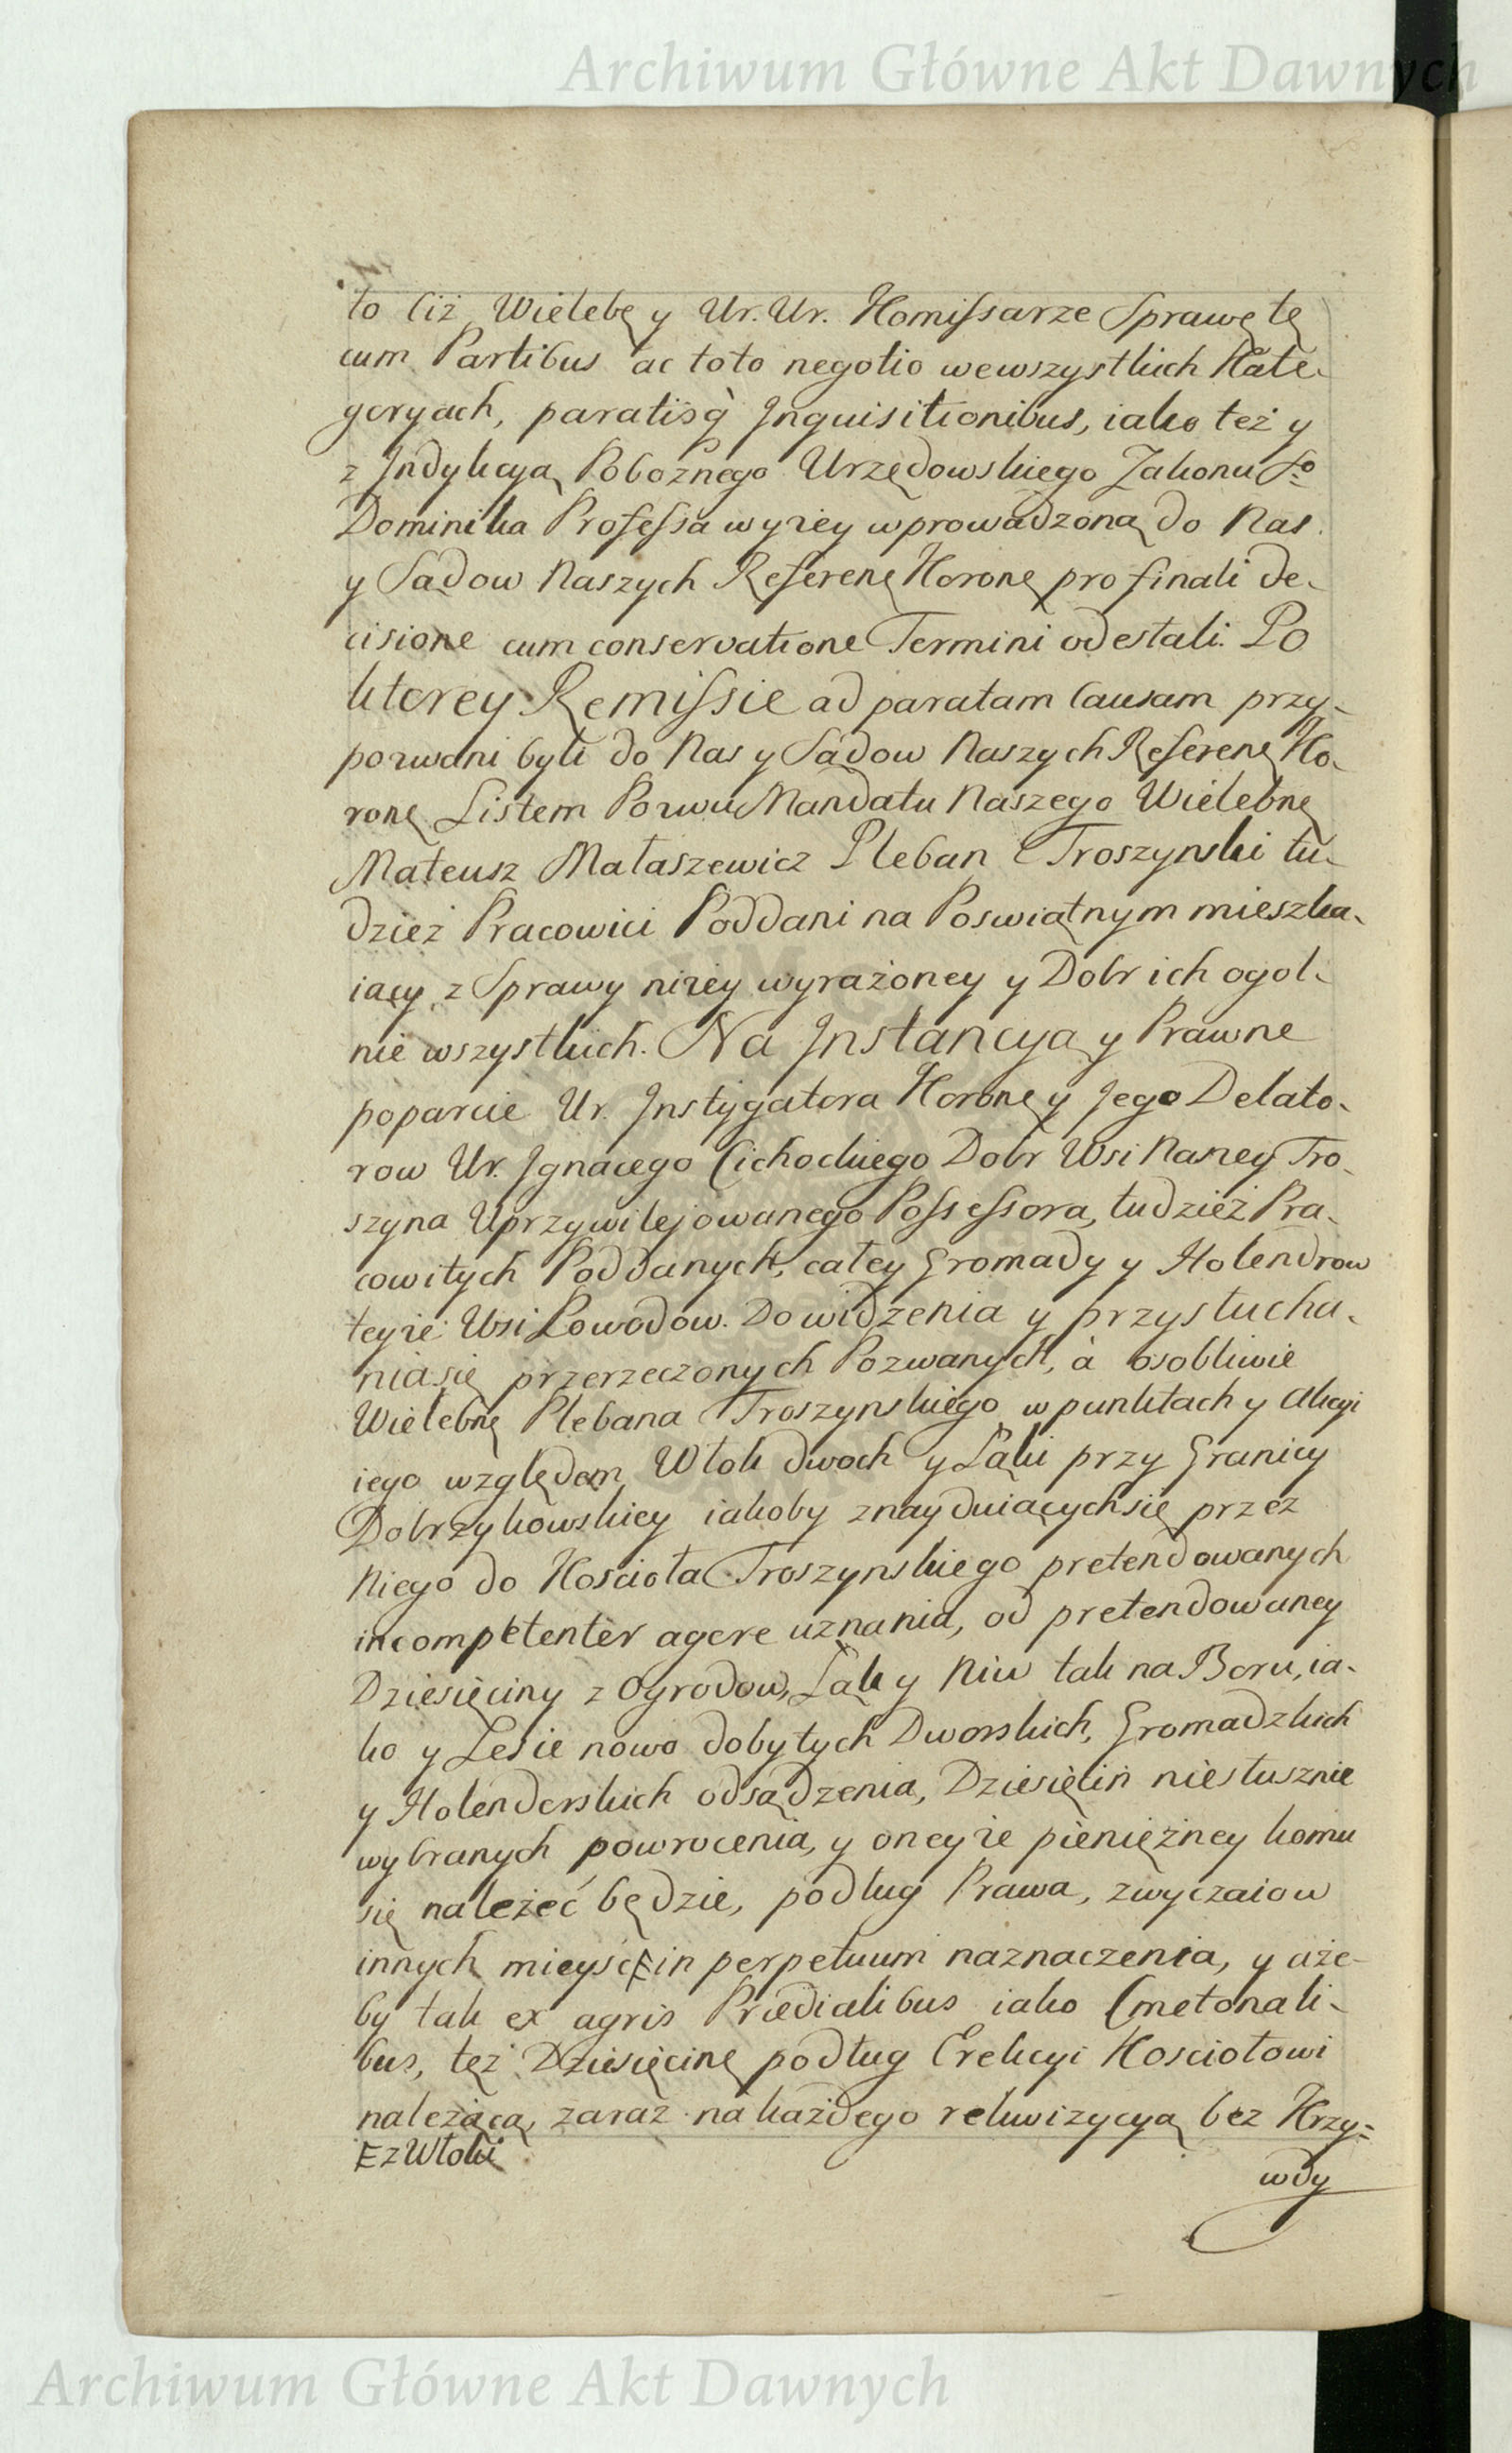 Archiwum Główne Akt Dawnych
to Ciż Wielebę y Ur. Ur. Kommissarze Sprawę tę
cum Partibus ac toto negotio wewszystkich Kate-
goryach, paratisq̀ Inquisitionibus, iako też y
z Indykcyą Pobożnego Urzędowskiego Zakonu So
Dominika Professa wyżey wprowadzoną do Nas
y Sądow Naszych Referenę Koronę pro finali de-
cisione cum conservatione Termini odesłali. Po
ktorey Remissie ad paratam Causam przy-
pozwani byli do Nas y Sądow Naszych Referenę Ko-
ronę Listem Pozwu Mandatu Naszego Wielebnę
Mateusz Mataszewicz Pleban Troszynski tu-
dzież Pracowici Poddani na Poswiątnym mieszka-
iący z Sprawy niżey wyrażoney y Dobr ich ogol-
nie wszystkich. Na Instancyą y Prawne
poparcie Ur. Instygatora Koronę y Jego Delato-
row Ur. Ignacego Cichockiego Dobr Wsi Naszey Tro-
szyna Uprzywilejowanego Possessora, tudzież Pra-
cowitych Poddanych, całey Gromady y Holendrow
teyże Wsi Powodow. Do widzenia y przysłucha-
nia się przerzeczonych Pozwanych, à osobliwie
Wielebnę Plebana Troszynskiego w punktach y Akcyi
iego względem Włok dwoch y Łąki przy Granicy
Dobrzykowskiey iakoby znayduiących się przez
Niego do Kościoła Troszynskiego pretendowanych
incompetentèr agere uznania, od pretendowaney
Dziesięciny z Ogrodow, Łąk y Niw tak na Boru, ia-
ko y Lesie nowo dobytych Dworskich, Gromadzkich
y Holenderskich odsądzenia, Dziesięcin niesłusznie
wybranych powrocenia, y oneyże pieniężney komu
się należeć będzie, podług Prawa, zwyczaiow
innych mieysc E in perpetuum naznaczenia, y aże-
by tak ex agris Prædialibus iako Cmetonali-
bus, też Dziesięcinę podług Erekcyi Kosciołowi
należącą, zaraz na każdego rekwizycyą bez Krzy=
E z Włoki
wdy
Archiwum Główne Akt Dawnych